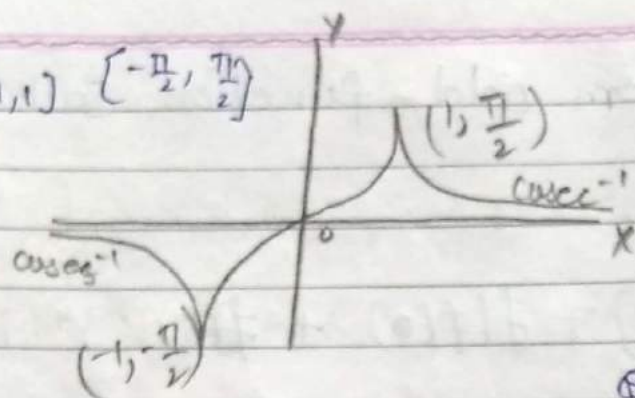 Y
,1] [-π/2, π/2]
(1, π/2)
cosec⁻¹
O
X
cosec⁻¹
(-1, -π/2)